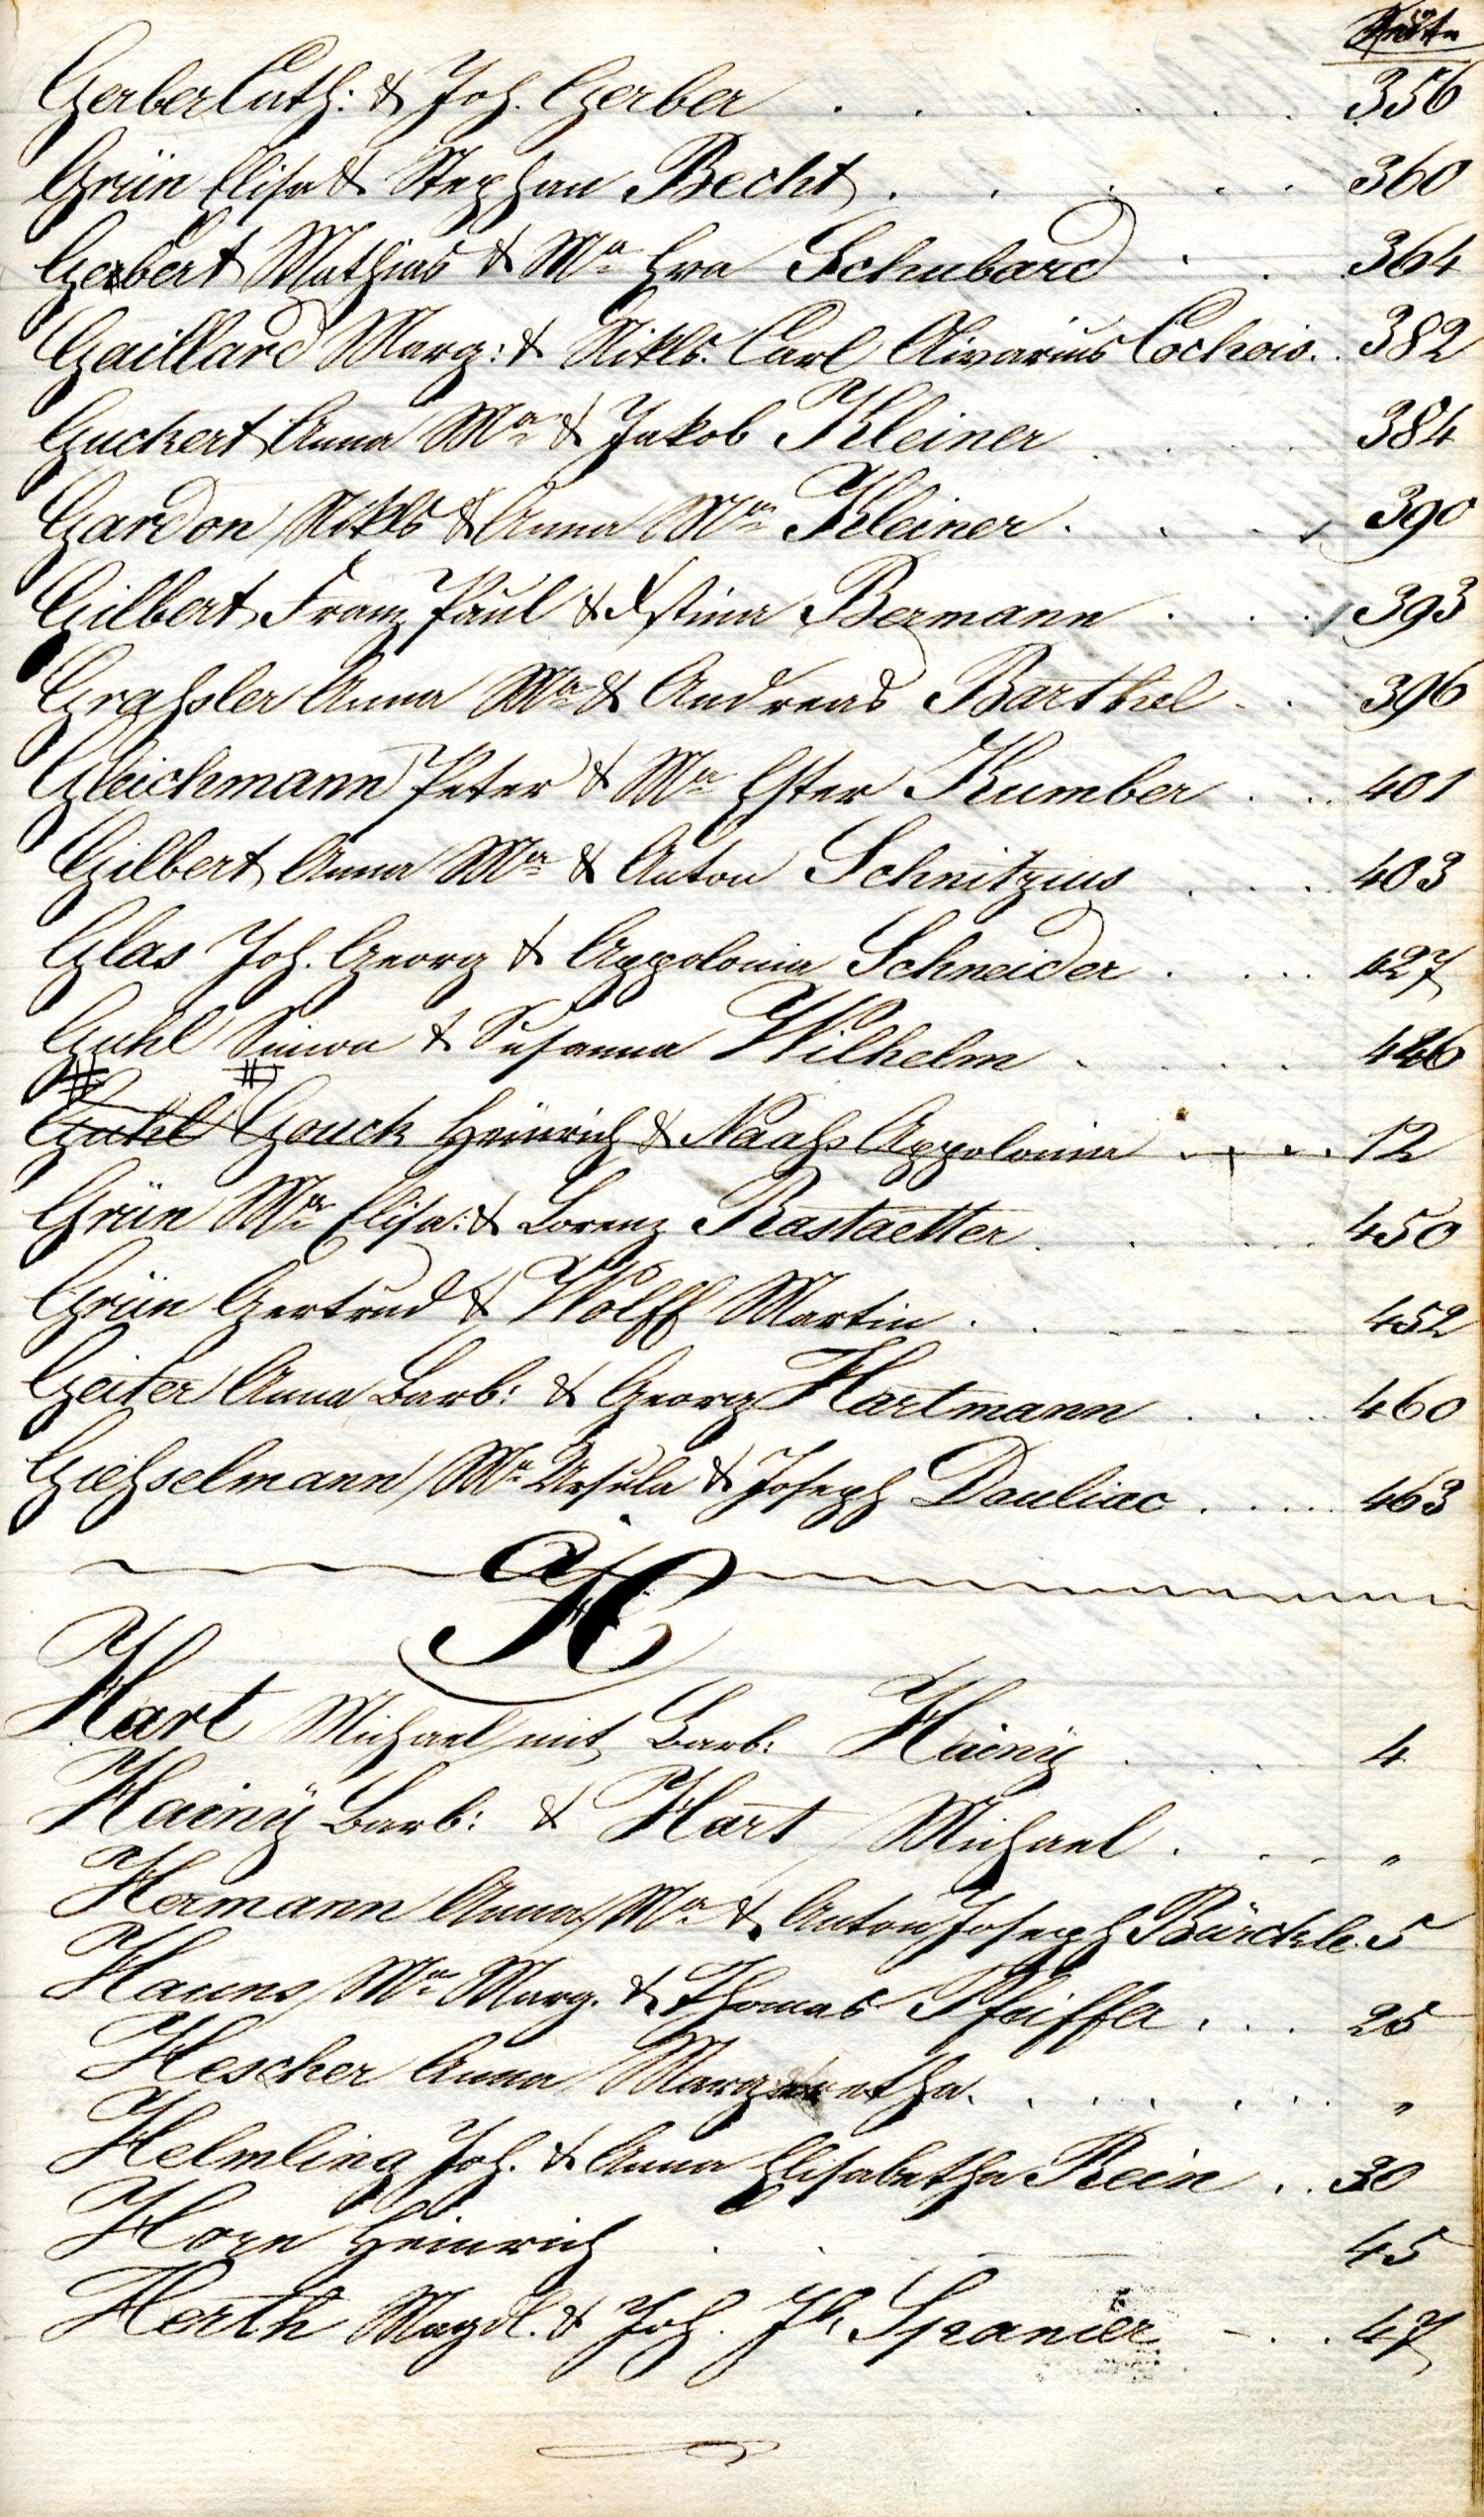 Seite
Gerber Cath: & Joh. Gerber . . . . . . 356
Grün Elisa & Stephan Becht . . . . . 360
Gerbert Mathias & Mª Eva Schubard . . 364
Gaillard Marg: & Nikls. Carl Aivarius Cochois. . 382
Guckert Anna Mª & Jakob Kleiner . . . 384
Gardon Nikls & Anna Mª Kleiner . . . 390
Gilbert Franz Paul & Xstina Bezmann . . . 393
Grahsler Anna Mª & Andreas Barthel . . 396
Gleichmann Peter & Mª Ester Kumber . . . 401
Gilbert Anna Mª & Anton Schnitzius . . . 403
Glas Joh. Georg & Appolonia Schneider . . . . 427
Guhl Simon & Susanna Wilhelm . . . . 446
Guhl Gouck Heinrich & Naahs Appolonia . . . . 12
Grün Mª Elisa: & Lorenz Rastaetter . . . . 450
Grün Gertrud & Wolff Martin . . . . . . 452
Geiter Anna Barb: & Georg Hartmann . . . 460
Giehselmann Mª Ursula & Joseph Dauliac . . . . 463
H
Hart Michael mit Barb: Hainÿ . . . 4
Hainÿ Barb: & Hart Michael . . . . "
Hermann Anna Mª & Anton Joseph Bürckle. 5
Hauns Mª Marg. & Thomas Pfeiffer . . . 25
Hescher Anna Margaretha . . . . . . . "
Helmling Joh. & Anna Elisabetha Rein . . 30
Horn Heinrich . . . 45
Herth Magdl. & Joh. Jk Spanier - . . 47